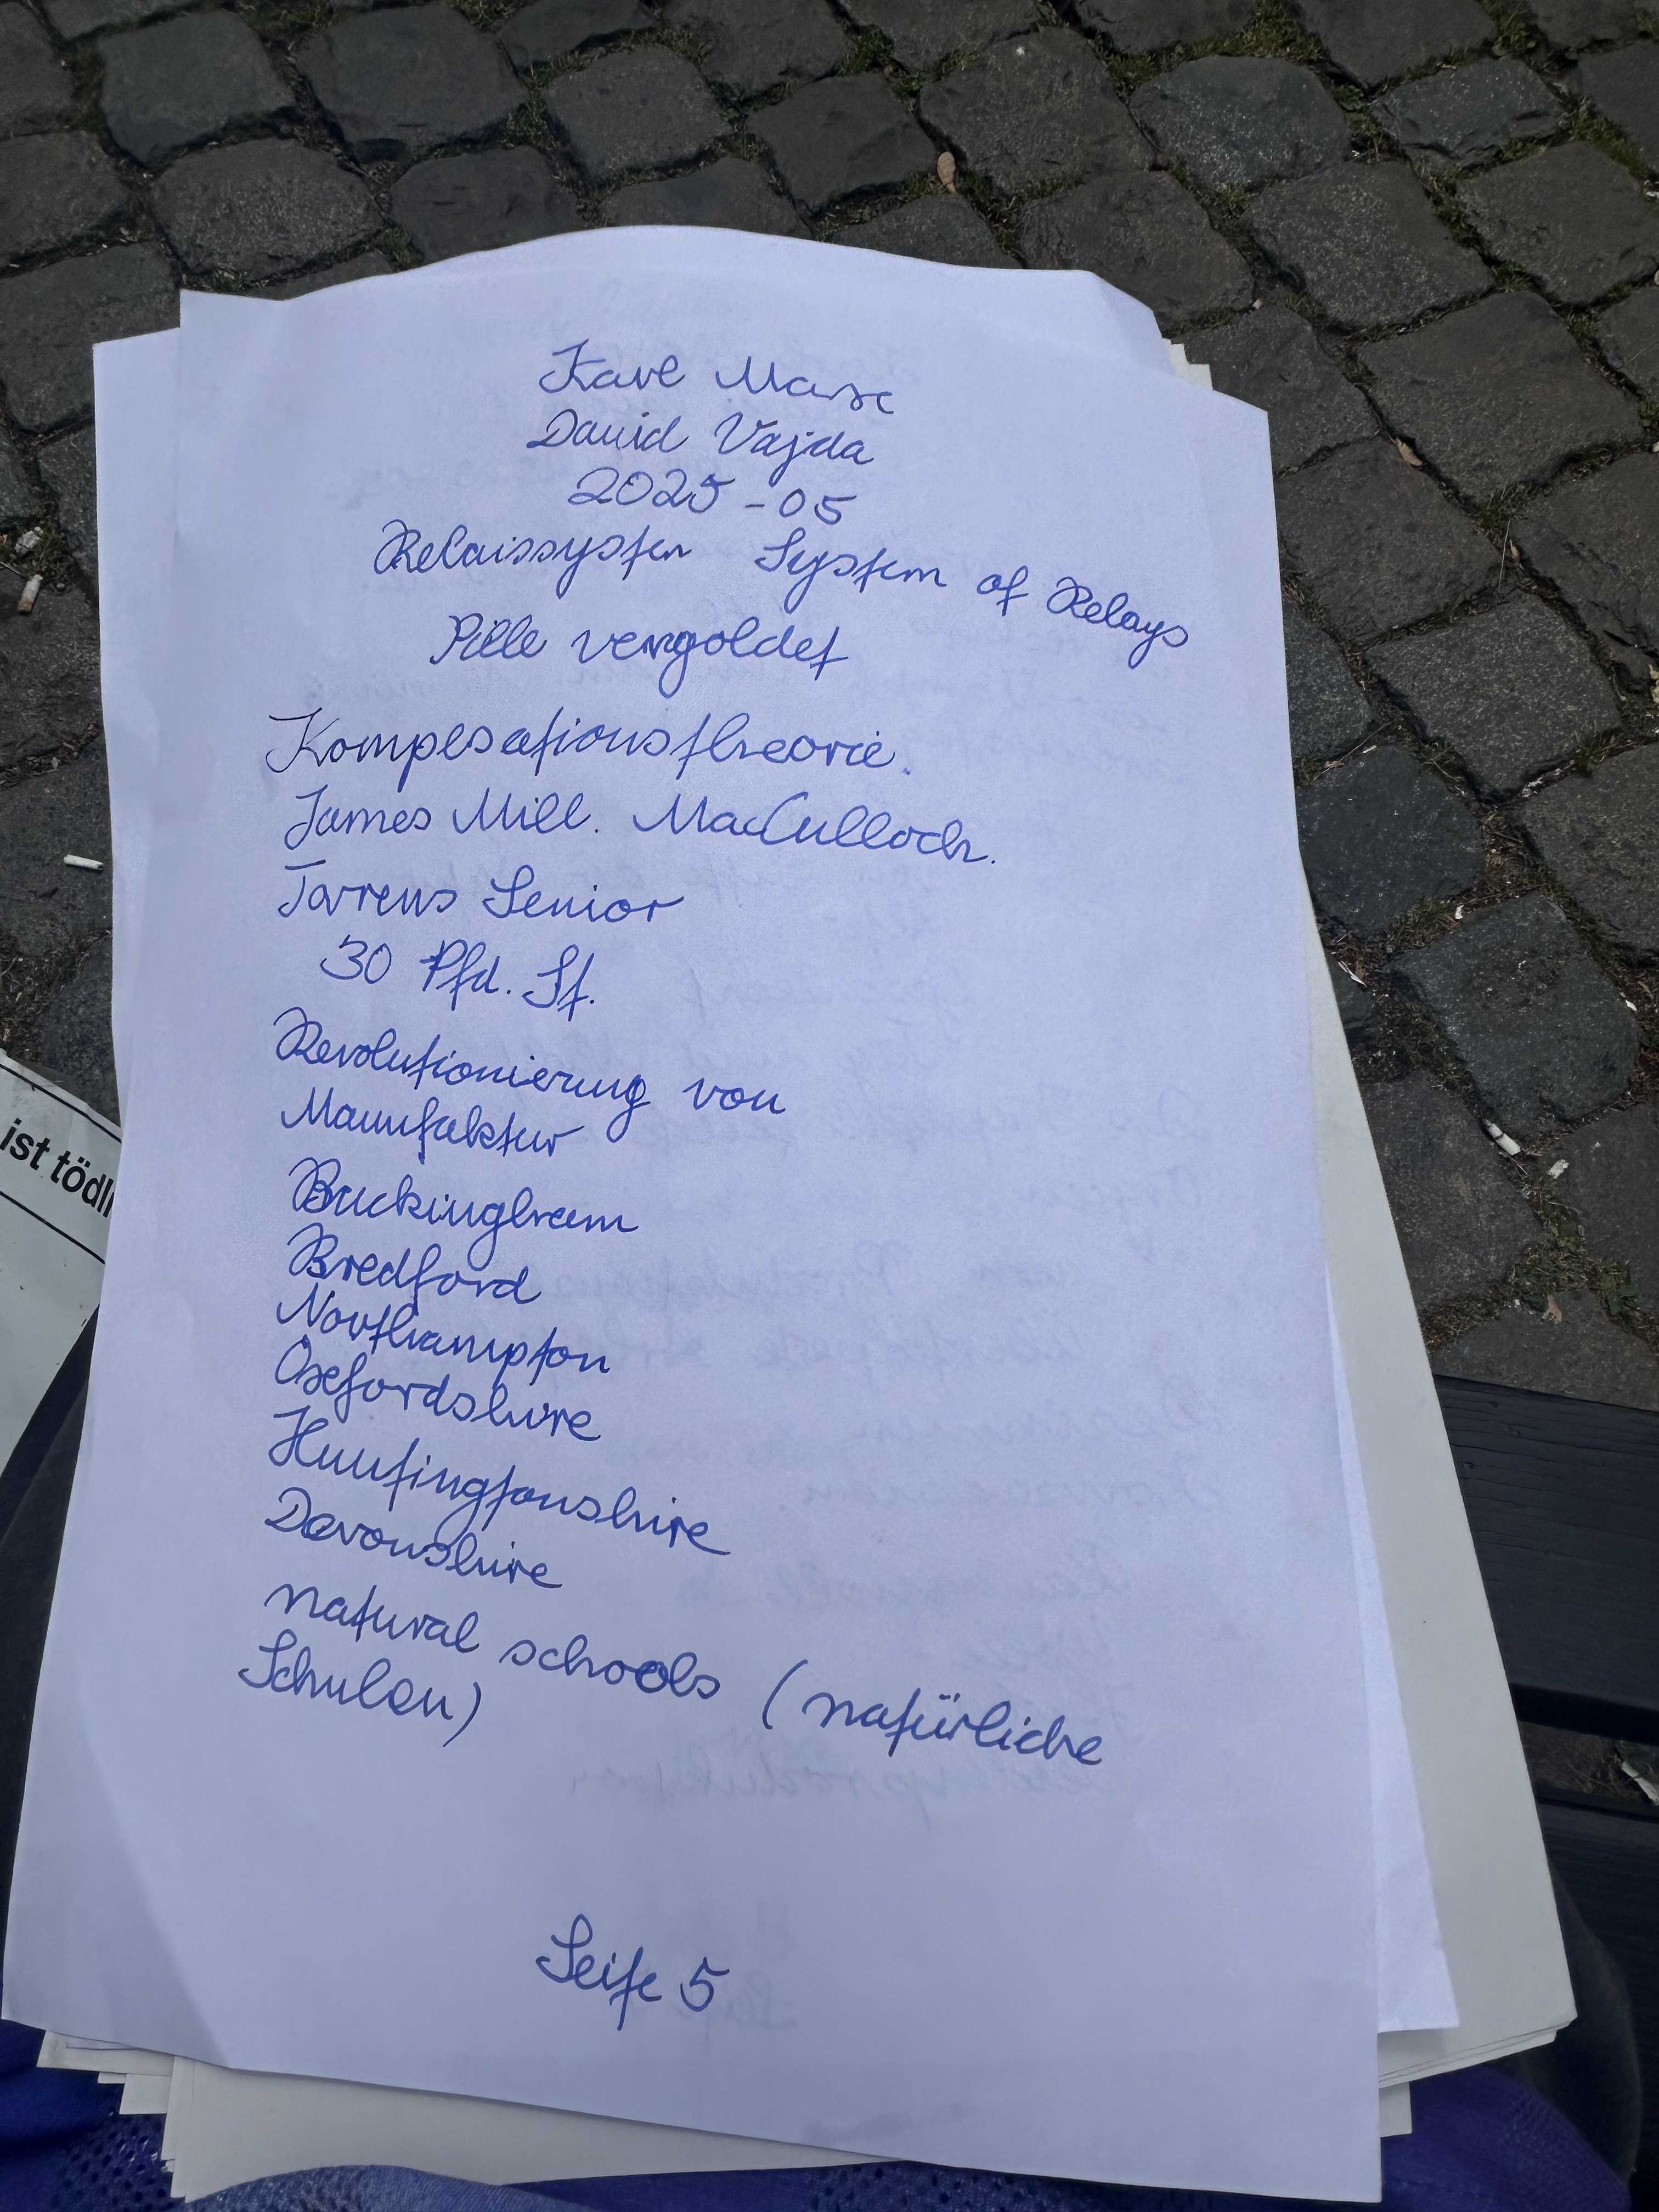 Karl Marx
David Vajda
2025-05
Relaissystem System of Relays
Pille vergoldet
Kompesationstheorie.
James Mill. MacCulloch.
Torrens Senior
30 Pfd. St.
Revolutionierung von
Manufaktur
Buckingham
Bredford
Northampton
Oxfordshire
Huntingtonshire
Devonshire
natural schools (natürliche
Schulen)
Seite 5
ist tödli